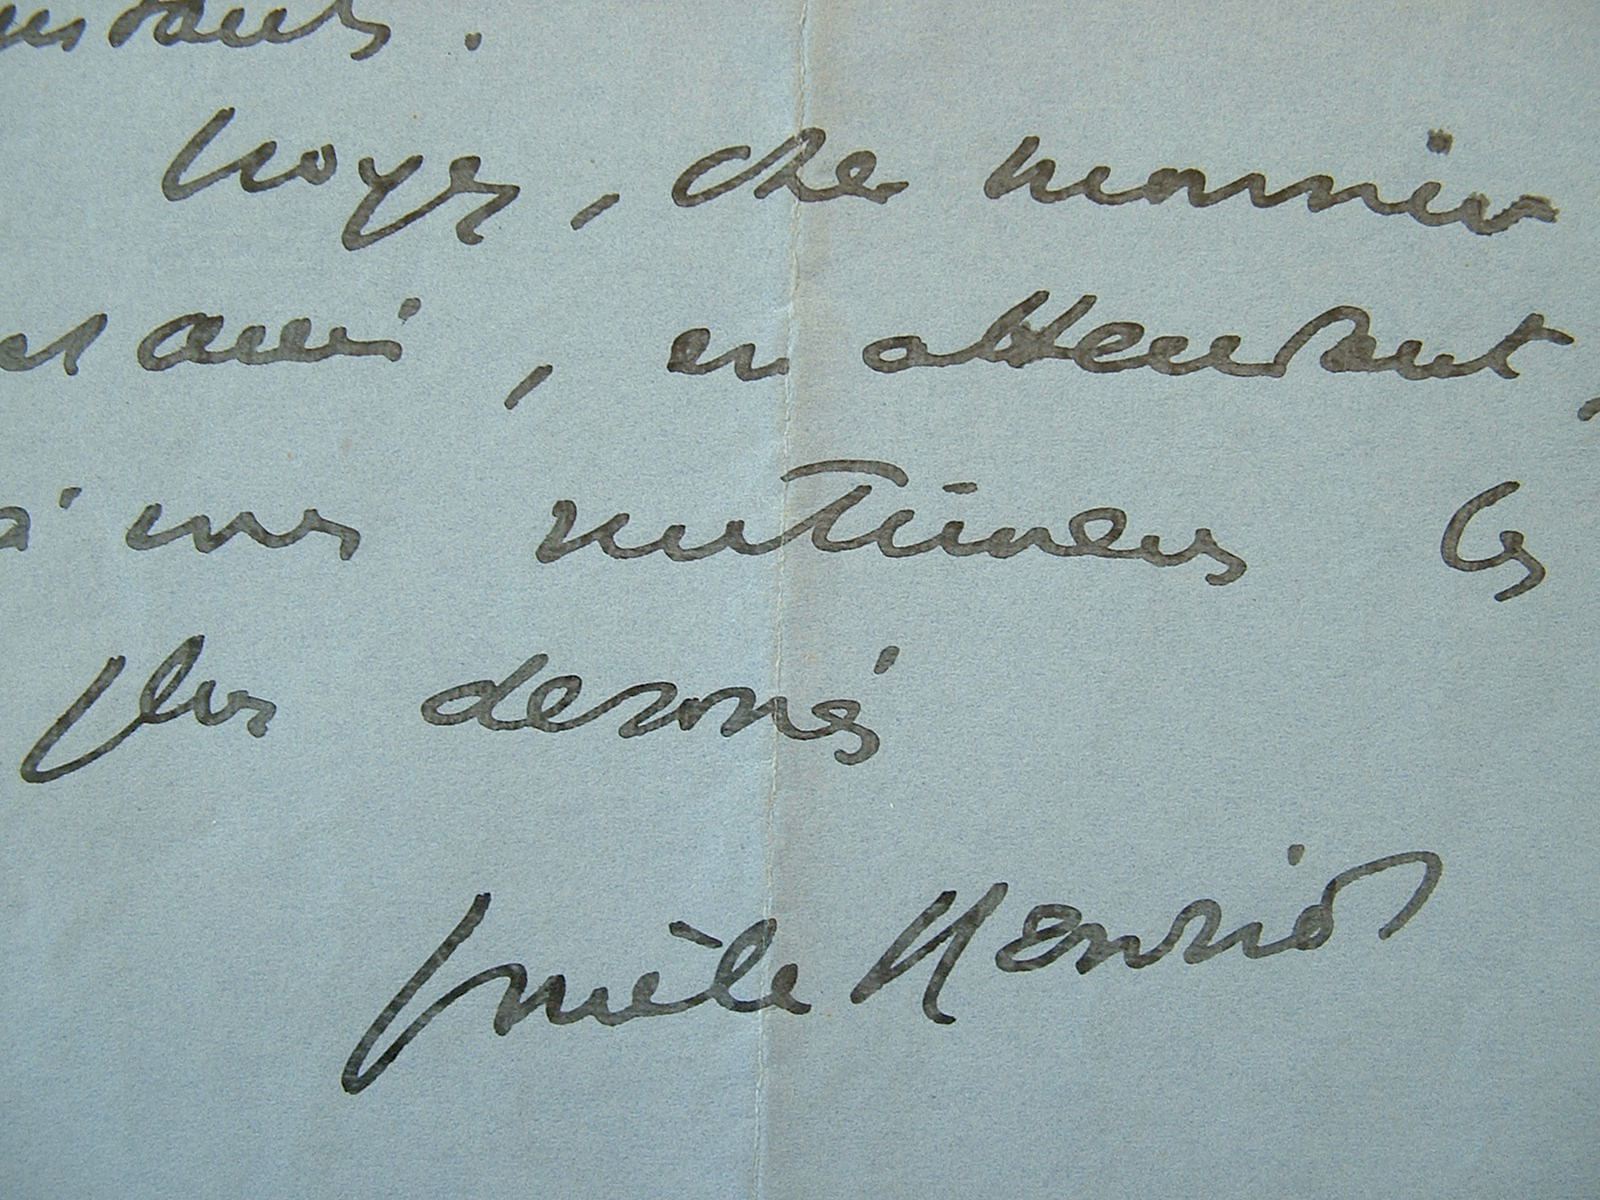 instants.
Croyez, cher monsieur
et ami, en attendant,
à mes sentiments les
plus dévoués
Émile Henriot